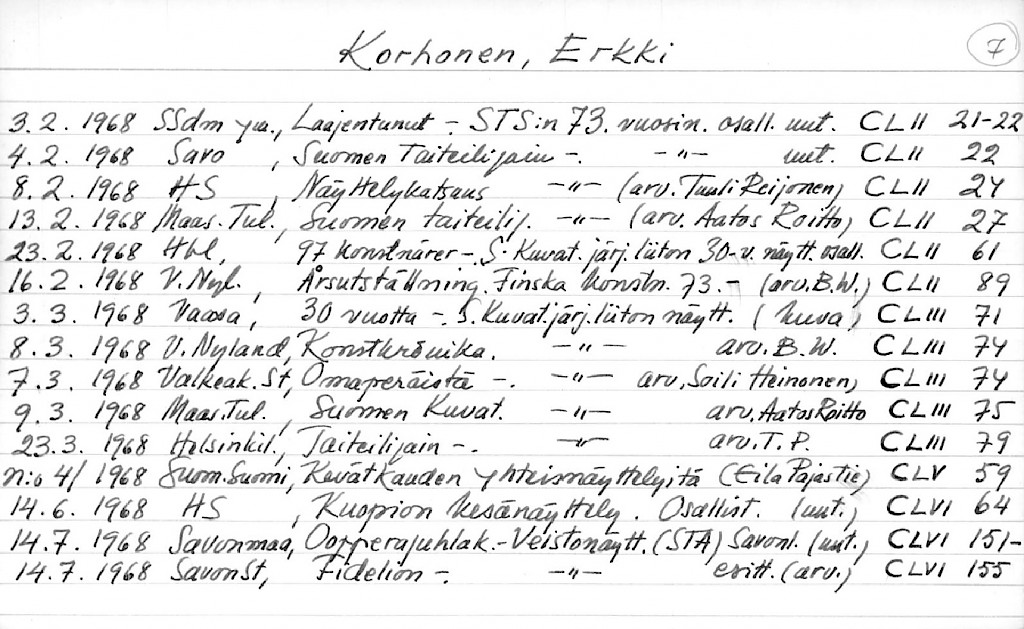 Korhonen, Erkki 7
3.2. 1968 SSdm ym., Laajentunut -. STS:n 73. vuosin. osall. uut. CLII 21-22
4.2. 1968 Savo, Suomen Taiteilijain -. -"- uut. CLII 22
8.2. 1968 HS, Näyttelykatsaus -"- (arv. Tuuli Reijonen) CLII 24
13.2. 1968 Maas.Tul., Suomen taiteilij. -"- (arv. Aatos Roitto) CLII 27
23.2. 1968 Hbl, 97 konstnärer -. S. Kuvat. järj. liiton 30-v. näytt. osall. CLII 61
16.2. 1968 V.Nyl., Årsutställning. Finska konstn. 73.- (arv. B.W.) CLII 89
3.3. 1968 Vaasa, 30 vuotta -. S. Kuvat.järj. liiton näytt. (kuva) CLIII 71
8.3. 1968 V. Nyland, Konstkrönika. -"- arv. B.W. CLIII 74
7.3. 1968 Valkeak. St, Omaperäistä -. -"- arv. Soili Heinonen) CLIII 74
9.3. 1968 Maas.Tul., Suomen Kuvat. -"- arv. Aatos Roitto CLIII 75
23.3. 1968 Helsinkil., Taiteilijain -. -"- arv. T.P. CLIII 79
N:o 4/ 1968 Suom.Suomi, Kevätkauden yhteisnäyttelyitä (Eila Pajastie) CLV 59
14.6. 1968 HS, Kuopion kesänäyttely. Osallist. (uut.) CLVI 64
14.7. 1968 Savonmaa, Oopperajuhlak.- Veistonäytt. (STA) Savonl. (uut.) CLVI 151-
14.7. 1968 SavonSt, Fidelion -. -"- esitt. (arv.) CLVI 155